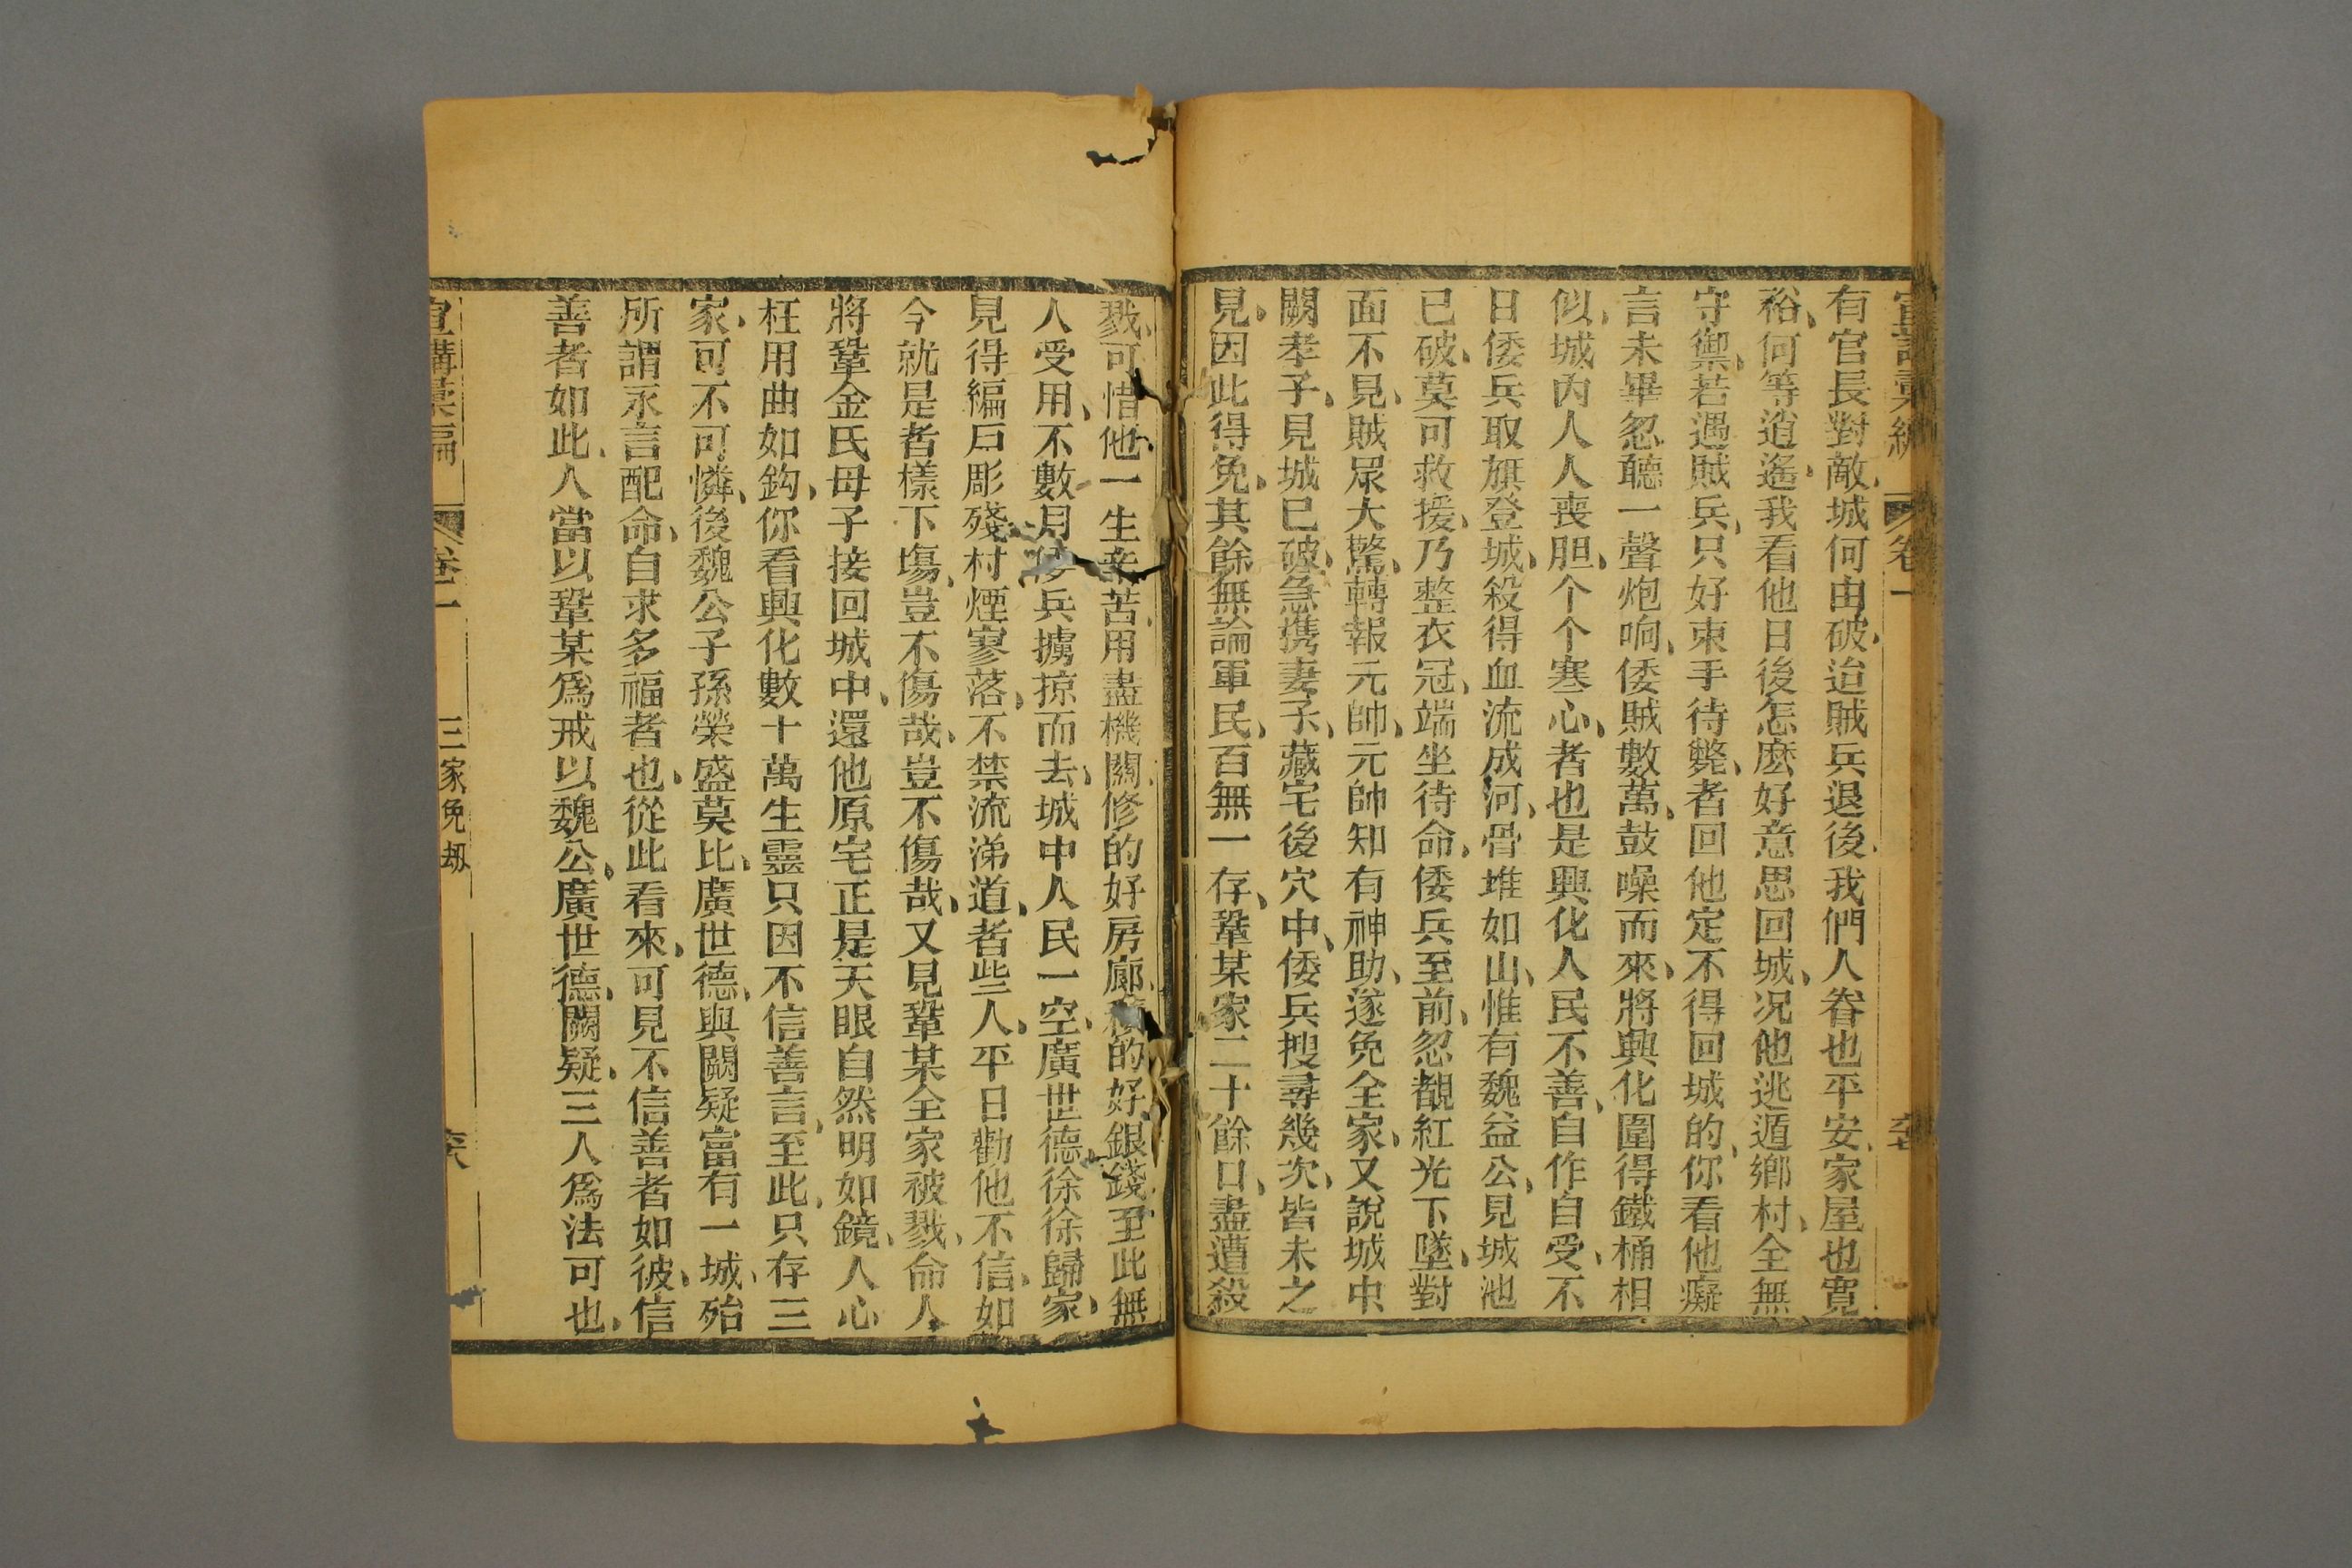 卷一
有官長對敵城何由破迨賊兵退後我們人眷也平安家屋也寬
裕何等逍遙我看他日後怎麽好意思回城况他逃遁鄉村全無
守禦若遇賊兵只好束手待斃者回他定不得回城的你看他癡
言未畢忽聽一聲炮响倭賊數萬鼓噪而來將興化圍得鐵桶相
似城內人人喪胆个个寒心者也是興化人民不善自作自受不
日倭兵取旗登城殺得血流成河骨堆如山惟有魏益公見城池
已破莫可救援乃整衣冠端坐待命倭兵至前忽覩紅光下墜對
面不見賊眾大驚轉報元帥元帥知有神助遂免全家又說城中
闕孝子見城已破急携妻子藏宅後穴中倭兵搜尋幾次皆未之
見因此得免其餘無論軍民百無一存鞏某家二十餘口盡遭殺
戮可惜他一生辛苦用盡機關修的好房廊積的好銀錢至此無
人受用不數月倭兵擄掠而去城中人民一空廣世德徐徐歸家
見得編戶彫殘村煙寥落不禁流涕道者些人平日勸他不信如
今就是者樣下塲豈不傷哉豈不傷哉又見鞏某全家被戮命人
將鞏金氏母子接回城中還他原宅正是天眼自然明如鏡人心
枉用曲如鈎你看興化數十萬生靈只因不信善言至此只存三
家可不可憐後魏公子孫榮盛莫比廣世德與闕疑富有一城殆
所謂永言配命自求多福者也從此看來可見不信善者如彼信
善者如此人當以鞏某爲戒以魏公廣世德闕疑三人爲法可也
宣講彙編 卷一 三家免刼